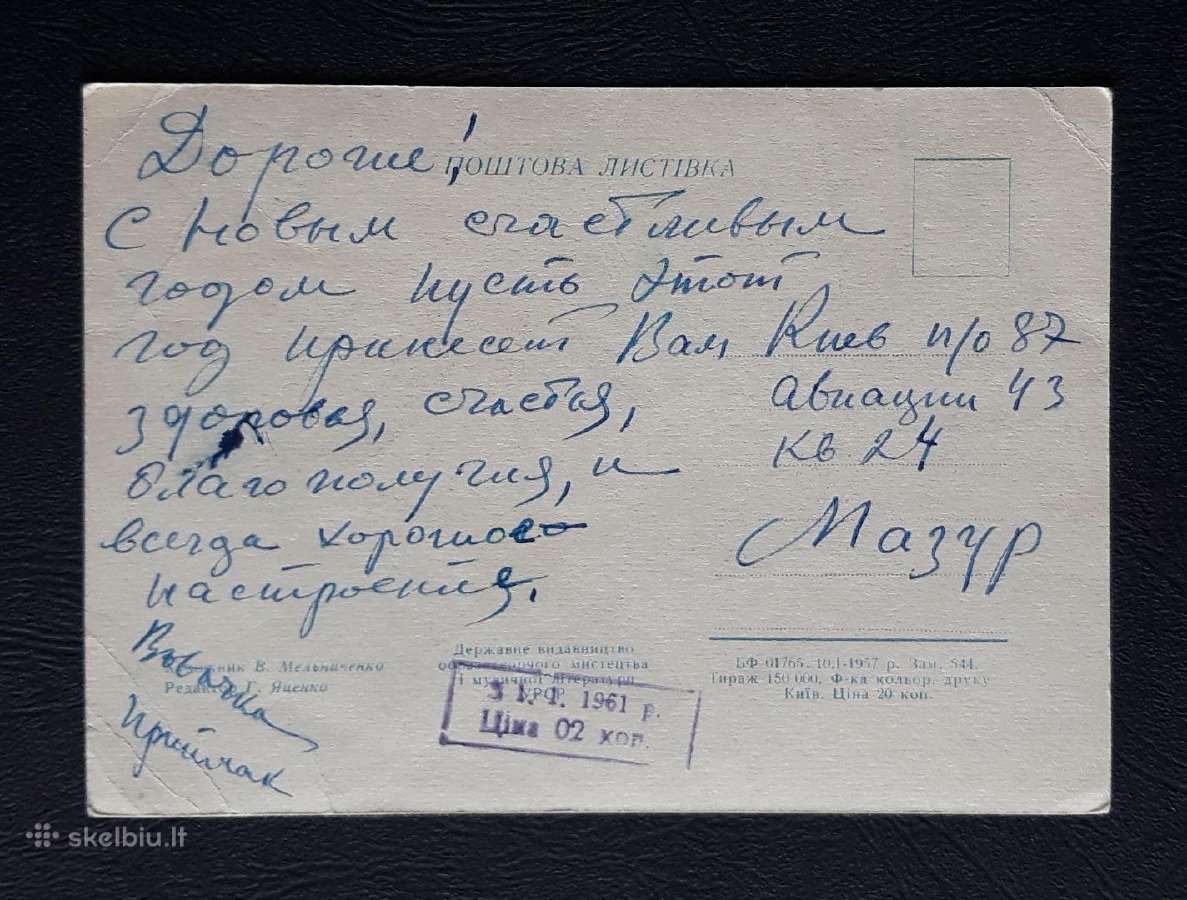 Дорогие!
ПОШТОВА ЛИСТІВКА
с Новым счастливым
годом пусть этот
год принесет Вам
здоровья, счастья,
благополучия, и
всегда хорошего
настроения.
Вовочка
Приймак
Киев п/о 87
Авиации 43
кв 24
Мазур
В. Мельниченко
Г. Яценко
Державне видавництво
образотворчого мистецтва
і музичної літератури
УРСР
З 1.1. 1961 р.
Ціна 02 коп.
БФ 01765. 10.I-1957 р. Зам. 544.
Тираж 150 000. Ф-ка кольор. друку
Київ. Ціна 20 коп.
skelbiu.lt